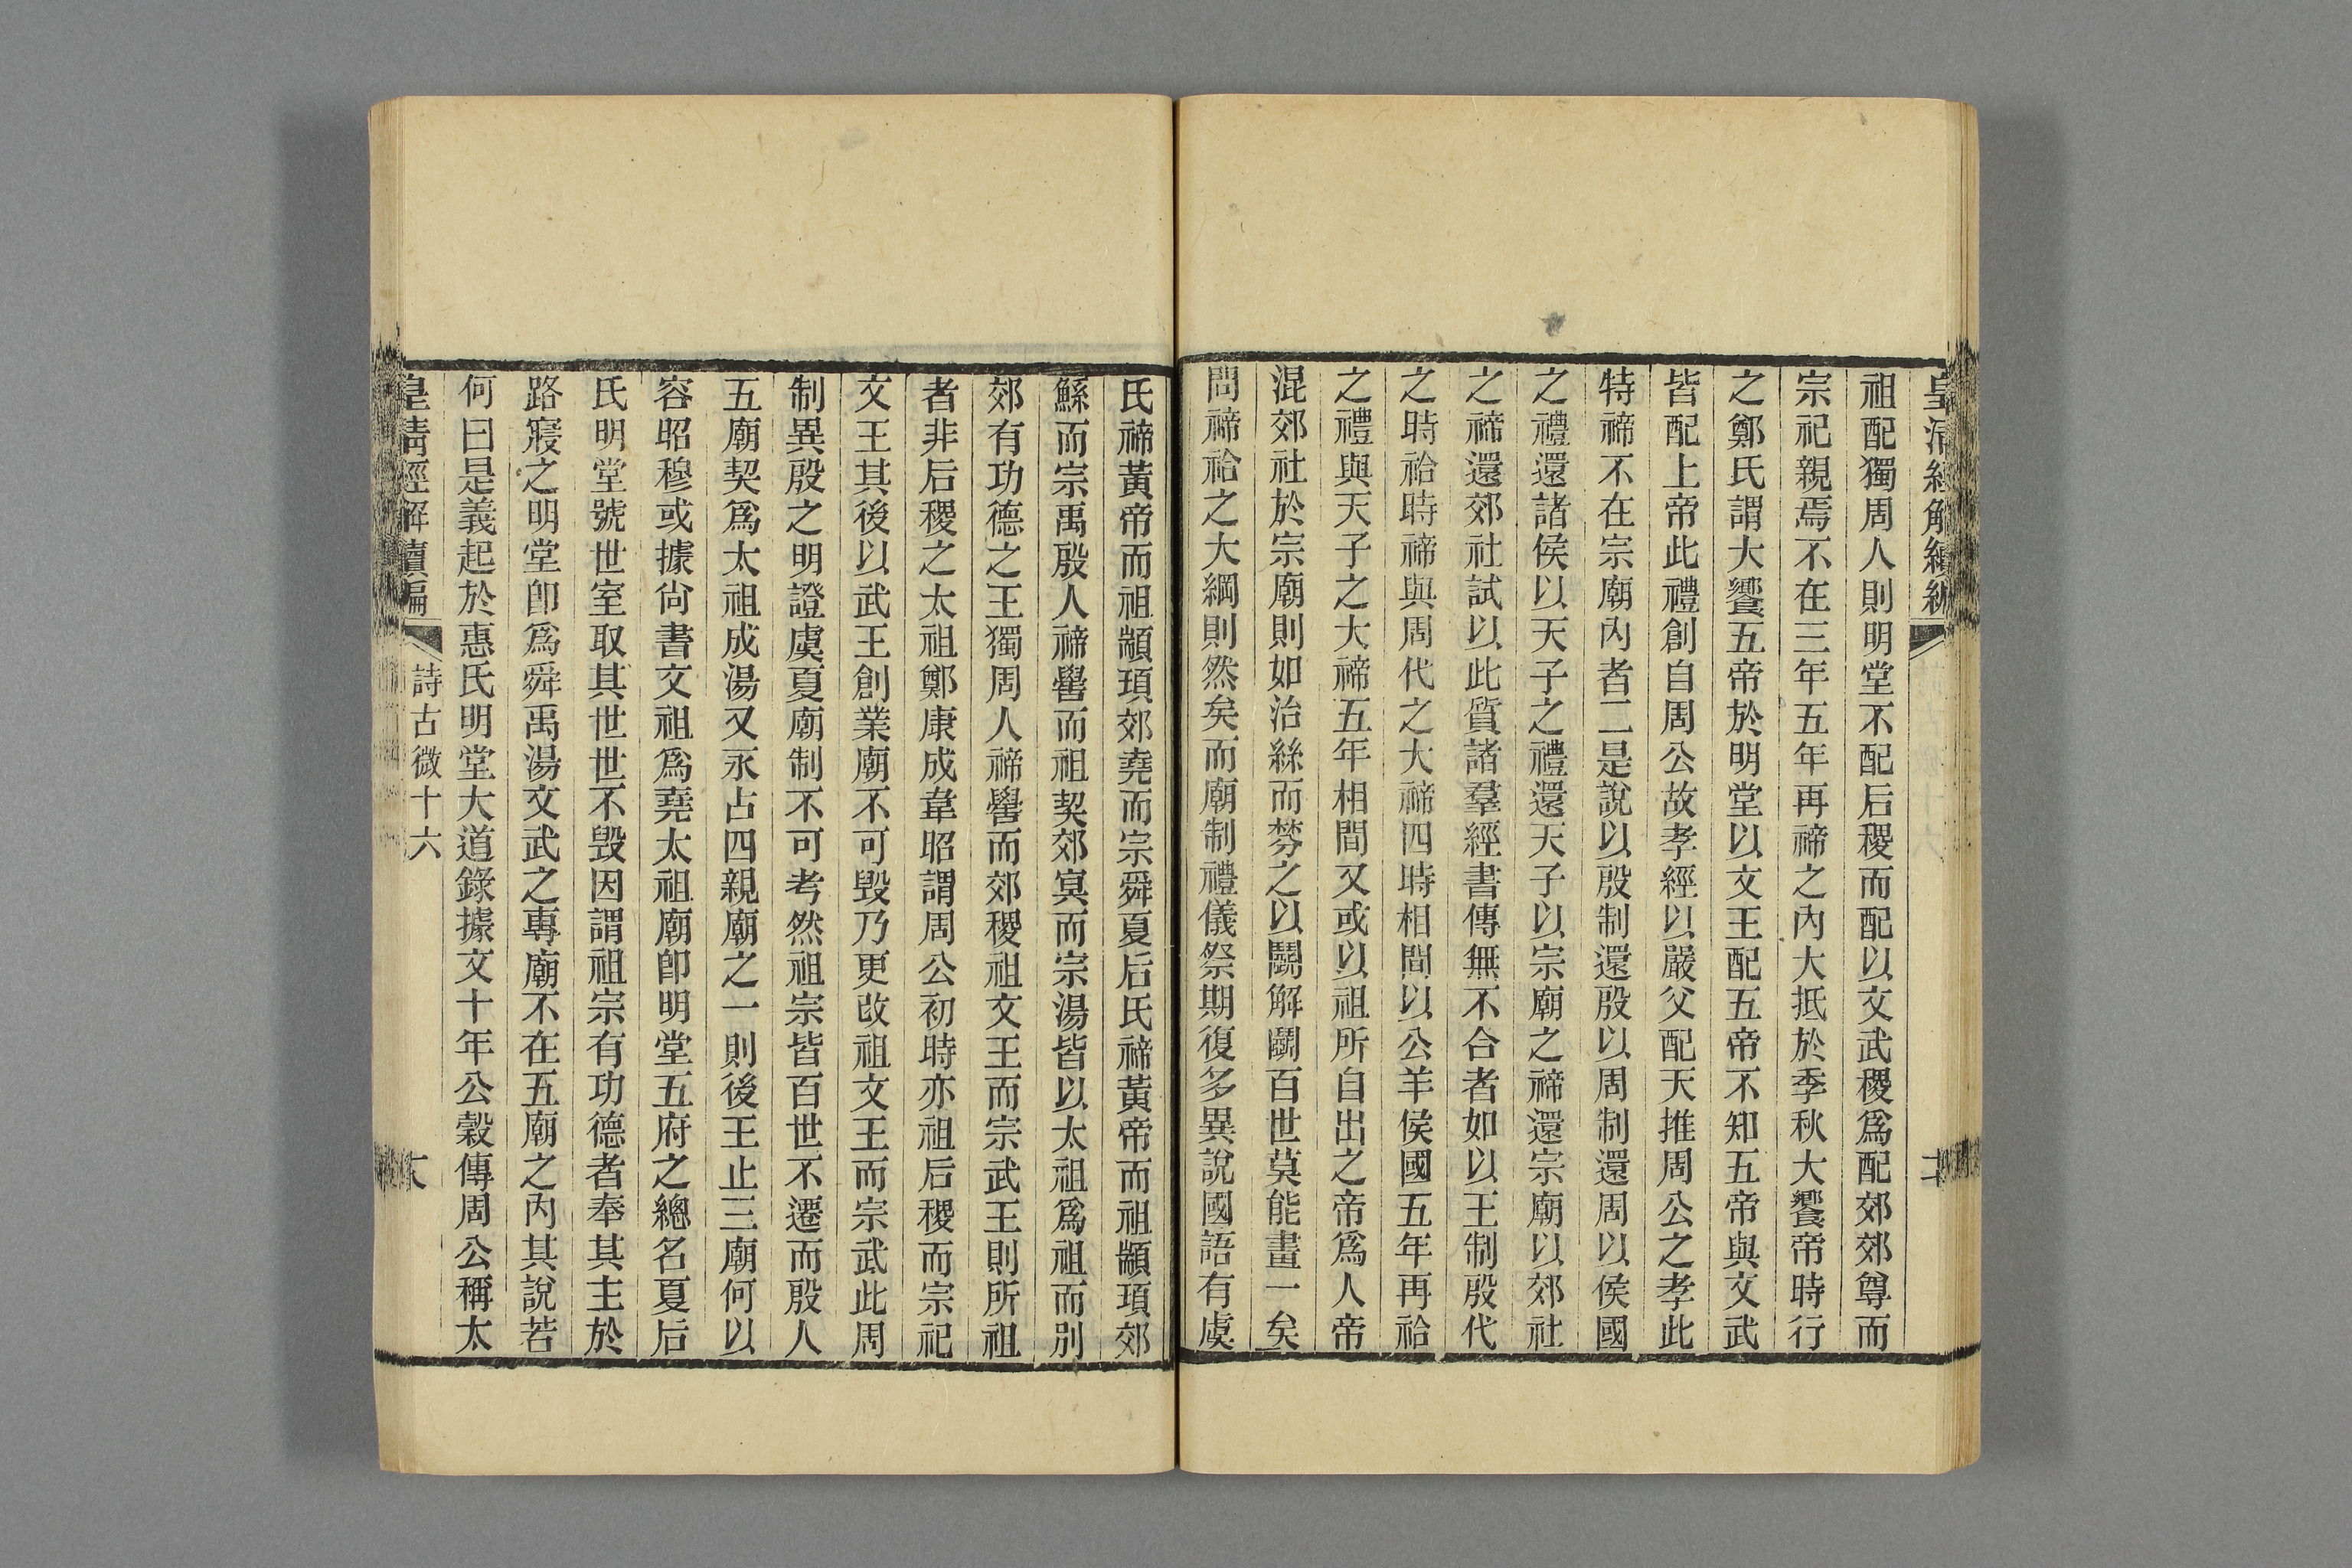 皇清經解續編
祖配獨周人則明堂不配后稷而配以文武稷爲配郊郊尊而
宗祀親焉不在三年五年再禘之內大抵於季秋大饗帝時行
之鄭氏謂大饗五帝於明堂以文王配五帝不知五帝與文武
皆配上帝此禮創自周公故孝經以嚴父配天推周公之孝此
特禘不在宗廟內者二是說以殷制還殷以周制還周以侯國
之禮還諸侯以天子之禮還天子以宗廟之禘還宗廟以郊社
之禘還郊社試以此質諸羣經書傳無不合者如以王制殷代
之時祫時禘與周代之大禘四時相間以公羊侯國五年再祫
之禮與天子之大禘五年相間又或以祖所自出之帝爲人帝
混郊社於宗廟則如治絲而棼之以鬭解鬭百世莫能畫一矣
問禘祫之大綱則然矣而廟制禮儀祭期復多異說國語有虞
氏禘黃帝而祖顓頊郊堯而宗舜夏后氏禘黃帝而祖顓頊郊
鯀而宗禹殷人禘嚳而祖契郊冥而宗湯皆以太祖爲祖而別
郊有功德之王獨周人禘嚳而郊稷祖文王而宗武王則所祖
者非后稷之太祖鄭康成韋昭謂周公初時亦祖后稷而宗祀
文王其後以武王創業廟不可毀乃更改祖文王而宗武此周
制異殷之明證虞夏廟制不可考然祖宗皆百世不遷而殷人
五廟契爲太祖成湯又永占四親廟之一則後王止三廟何以
容昭穆或據尙書文祖爲堯太祖廟卽明堂五府之總名夏后
氏明堂號世室取其世世不毀因謂祖宗有功德者奉其主於
路寢之明堂卽爲舜禹湯文武之專廟不在五廟之內其說若
何曰是義起於惠氏明堂大道錄據文十年公穀傳周公稱太
皇清經解續編 詩古微十六